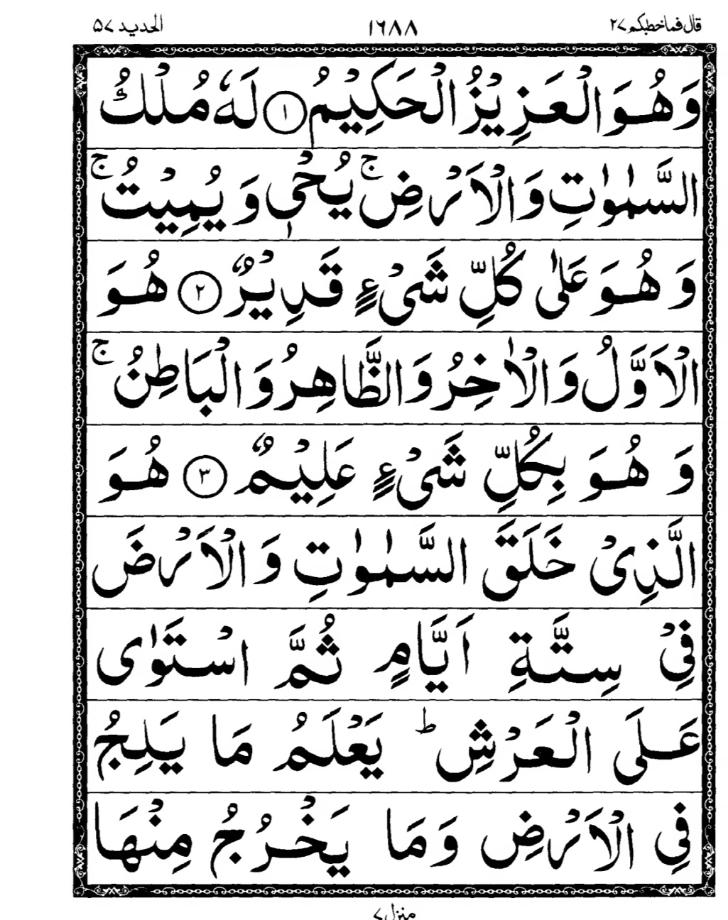 قال فماخطبكم ٢٧ ١٦٨٨ الحديد ٥٧
وَهُوَ الْعَزِيْزُ الْحَكِيْمُ ۝١ لَهٗ مُلْكُ
السَّمٰوٰتِ وَالْاَرْضِ ۚ يُحْيٖ وَ يُمِيْتُ ۚ
وَ هُوَ عَلٰى كُلِّ شَيْءٍ قَدِيْرٌ ۝٢ هُوَ
الْاَوَّلُ وَالْاٰخِرُ وَالظَّاهِرُ وَالْبَاطِنُ ۚ
وَ هُوَ بِكُلِّ شَيْءٍ عَلِيْمٌ ۝٣ هُوَ
الَّذِيْ خَلَقَ السَّمٰوٰتِ وَ الْاَرْضَ
فِيْ سِتَّةِ اَيَّامٍ ثُمَّ اسْتَوٰى
عَلَى الْعَرْشِ ؕ يَعْلَمُ مَا يَلِجُ
فِي الْاَرْضِ وَمَا يَخْرُجُ مِنْهَا
منزل ٧